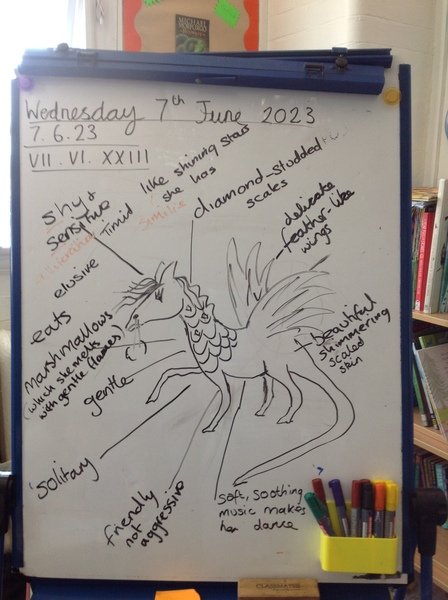 MICHAEL
MORPURGO
Wednesday 7th June 2023
7.6.23
VII.VI.XXIII
shy +
sensitive
alliteration
timid
elusive
eats
marshmallows
(which she melts
with gentle flames)
gentle
solitary
friendly
not
aggressive
like shining stars
she has
simile
diamond-studded
scales
delicate
feather-like
wings
beautiful
shimmering
scaled
skin
soft, soothing
music makes
her dance
CLASSMATES